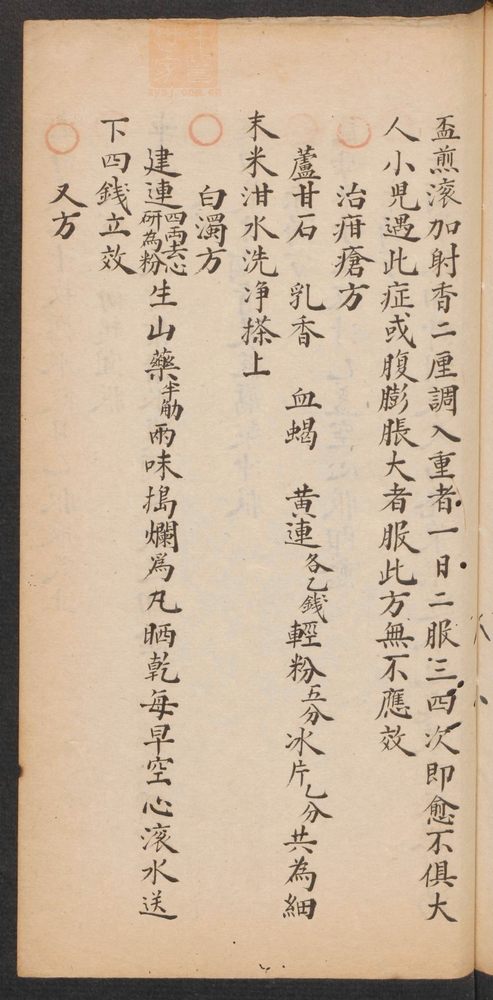 盃煎滚加射香二厘調入重者一日二服三四次即愈不俱大
人小児遇此症或腹膨脹大者服此方無不應效
治疳瘡方
蘆甘石 乳香 血蝎 黄連各乙錢輕粉五分冰片乙分共為細
末米泔水洗净搽上
白濁方
建連四両去心研為粉生山藥半觔兩味搗爛爲丸晒乾每早空心滚水送
下四錢立效
又方